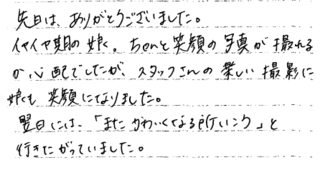 先日は、ありがとうございました。
イヤイヤ期の娘く、ちゃんと笑顔の写真が撮れる
か心配でしたが、スタッフさんの楽しい撮影に
娘も笑顔になりました。
翌日には、「またかわいくなる所いこう」と
行きたがっていました。